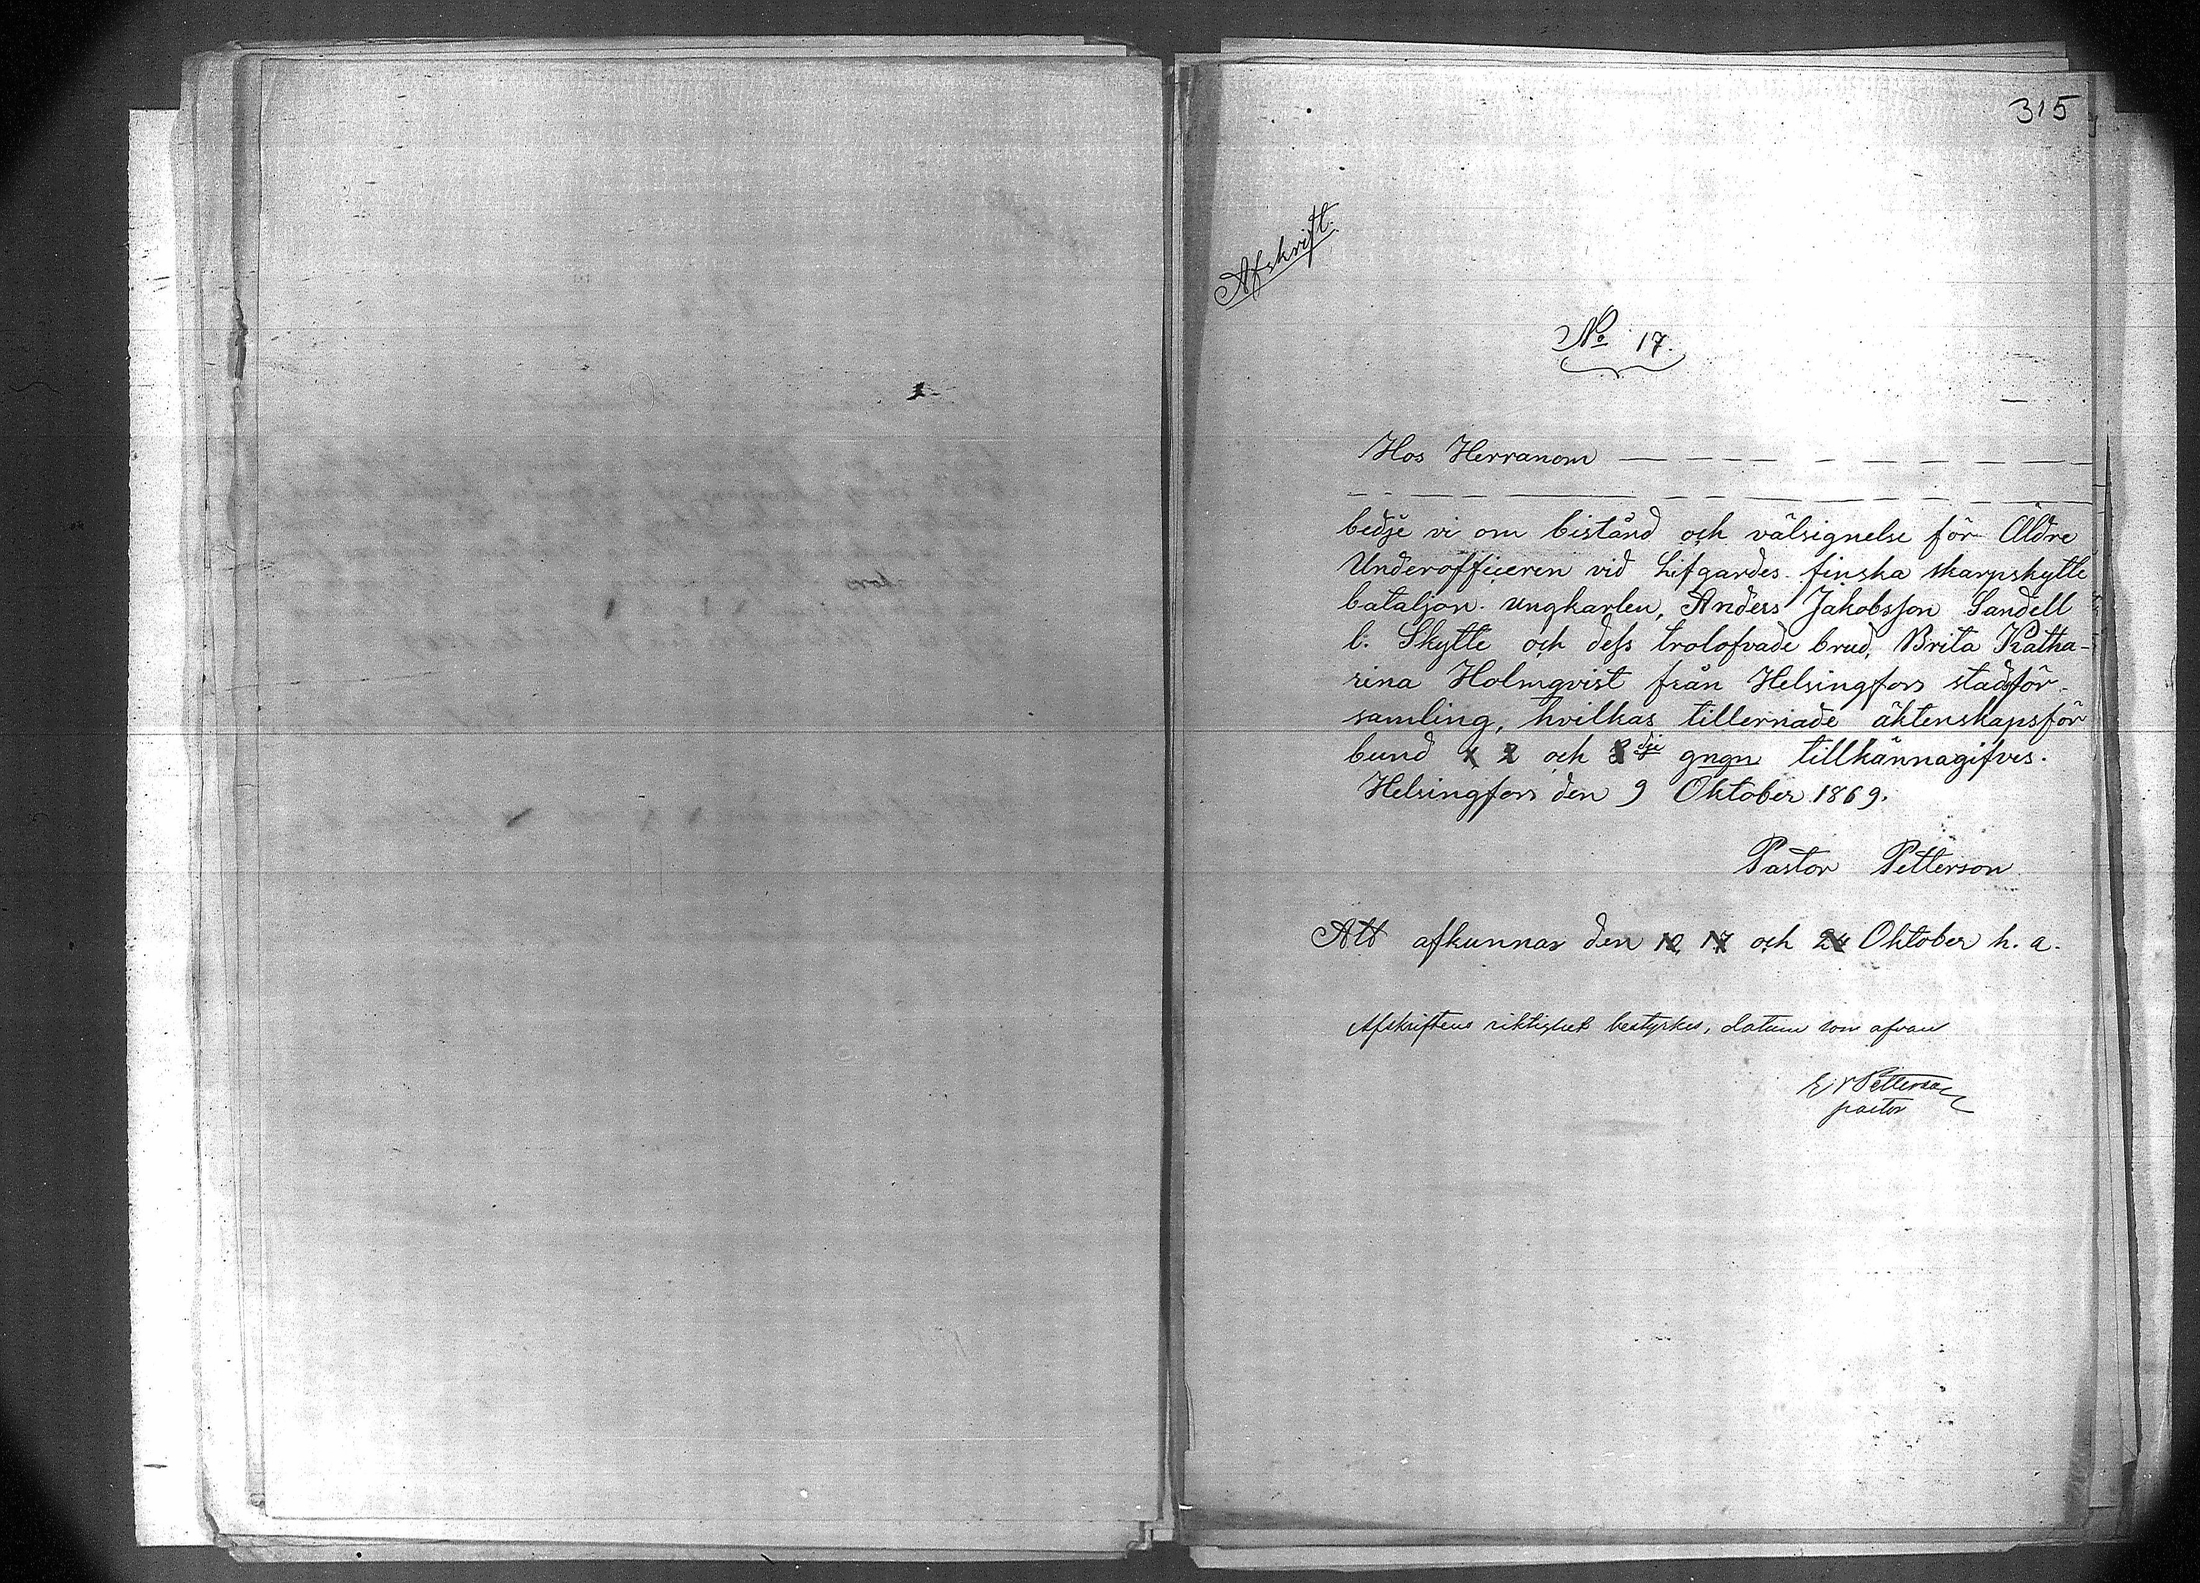 315
Afskrift.
No 17.
Hos Herranom — — — — — — — —
— — — — — — — — — — — —
bedje vi om bistånd och välsignelse för Äldre
Underofficeren vid Lifgardes finska skarpskytte
bataljon ungkarlen, Anders Jakobsson Sandell
l. Skytte och dess trolofvade brud, Brita Katha-
rina Holmqvist från Helsingfors stadsför-
samling, hvilkas tillernade äktenskapsför
bund 1 2 och 3dje gngn tillkännagifves.
Helsingfors den 9 Oktober 1869.
Pastor Petterson
Att afkunnas den 10, 17 och 24 Oktober h. a.
Afskriftens riktighet bestyrkes, datum som ofvan
Petterson
pastor